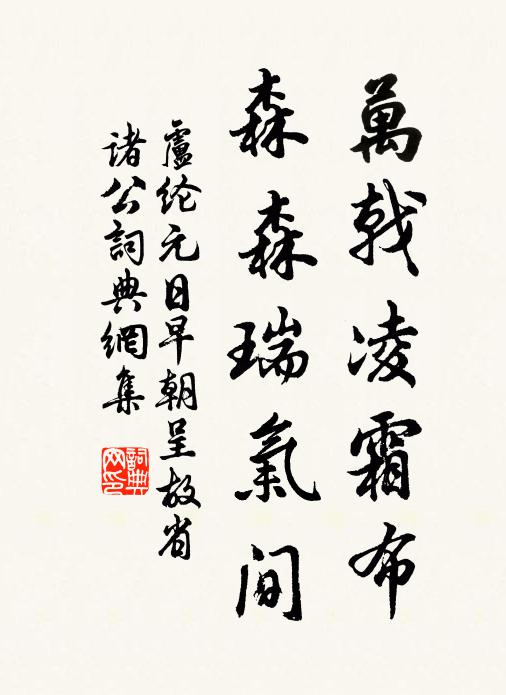 萬戟凌霜布
森森瑞氣间
盧纶元日早朝呈故省
諸公詞典網集
詞典
网印